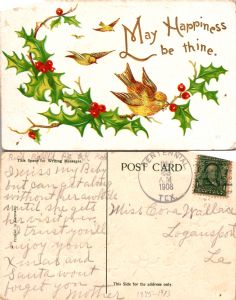 May Happiness
be thine.
This Space for Writing Messages.
POST CARD
CENTENNIAL
1908
TEX.
I miss my Baby
but can get along
without her awhile
until she gets
her visit
I trust you'll
enjoy your
Xmas and
Santa won't
forget you
Mother
Miss Cora Wallace
Logansport
La
This Side for the Address.